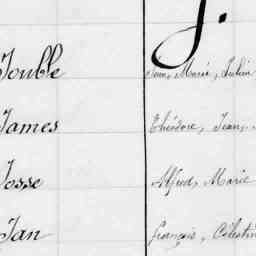 J.
Jouble Jean, Marie, Julien
James Théodore, Jean,
Josse Alfred, Marie
Jan François, Célestin